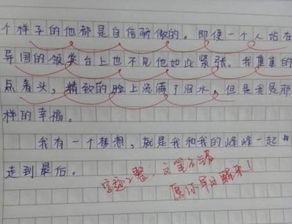 个样子的他都是自信骄傲的。即使一个人站在
异国的颁奖台上也不见他如此紧张。我重重的
点着头，精致的脸上流满了泪水，但是我是那
样的幸福。
我有一个梦想，就是我和我的峰峰一起
走到最后。